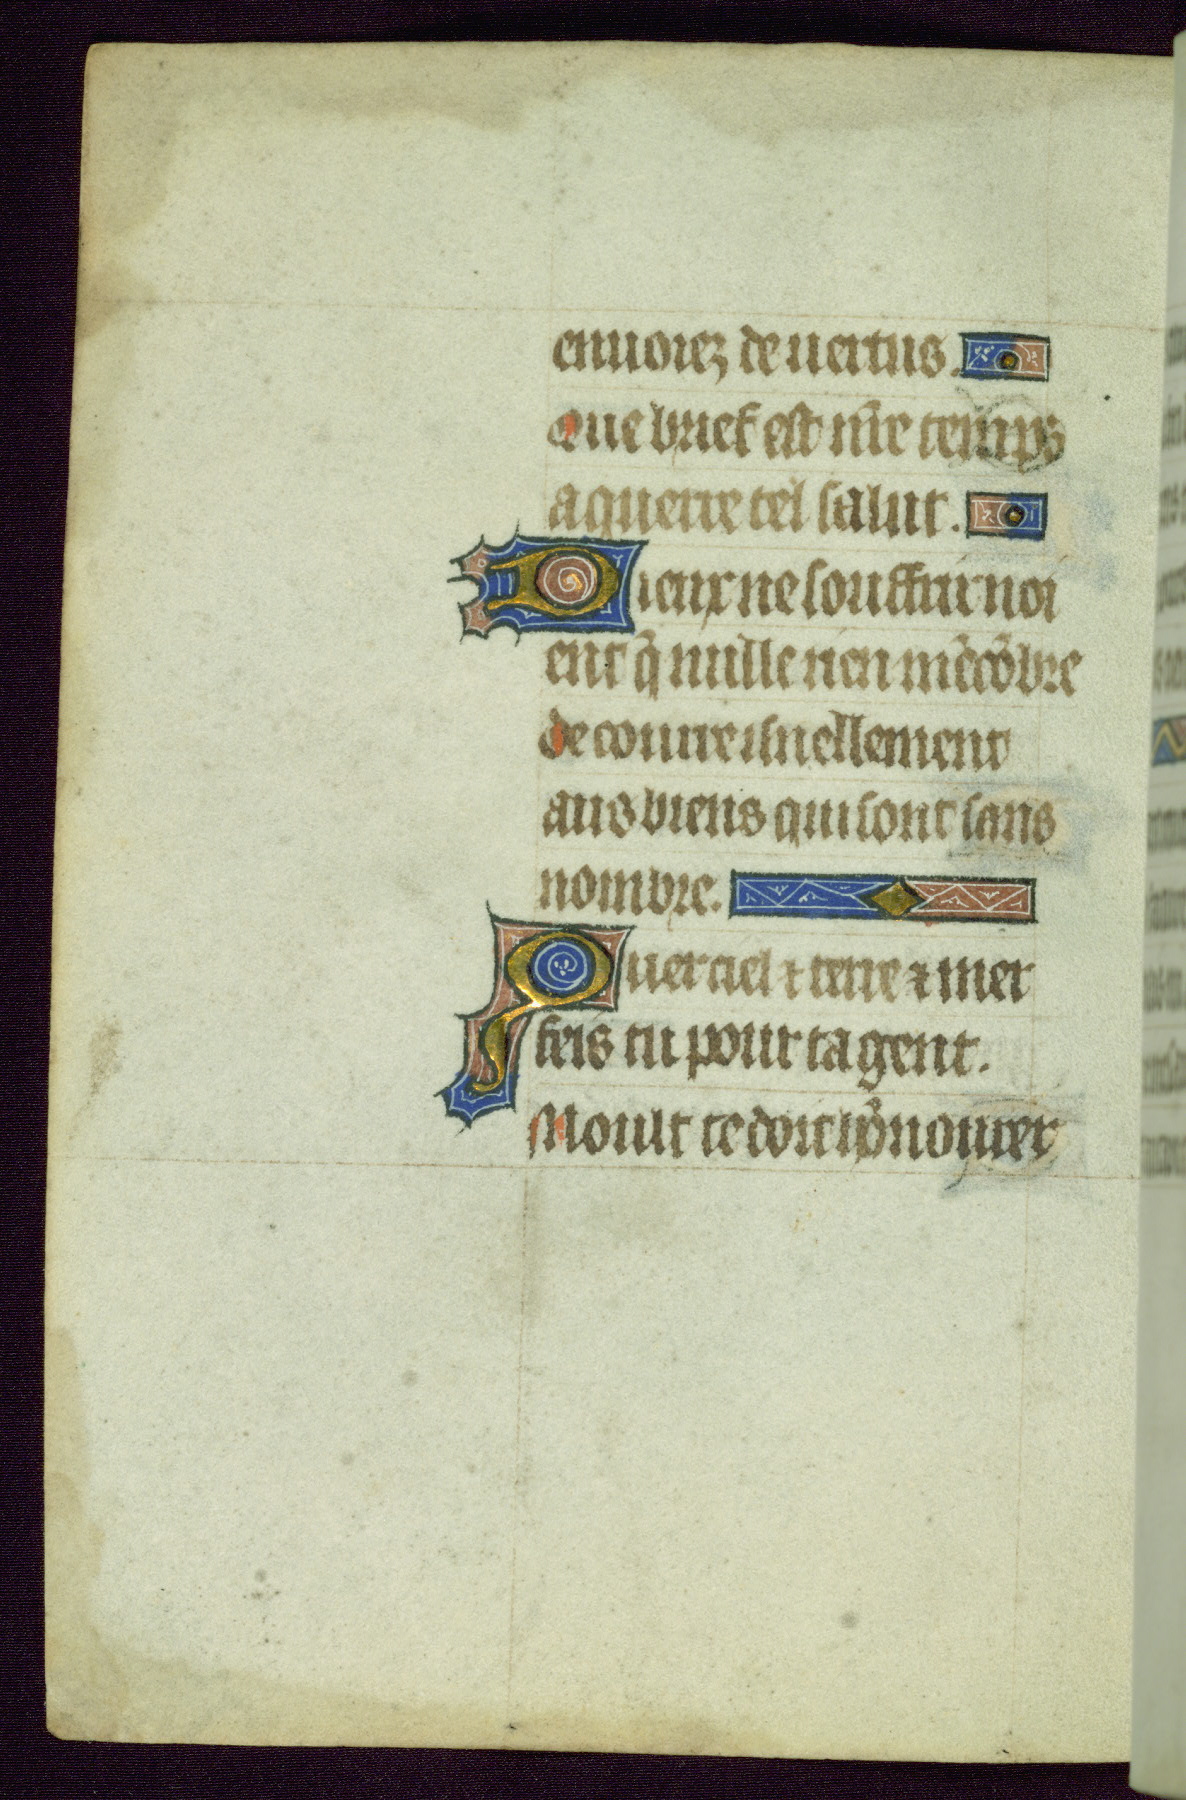 enuoiez de uertus.
Que brief est nr̄e temps
a querre tel salut.
Dieux ne souffrir noi
ent q̄ nulle rien mēcōbre
de courre isnellement
aus biens qui sont sans
nombre.
Quer ciel ⁊ terre ⁊ mer
feis tu pour ta gent.
Moult te doit hōnourer